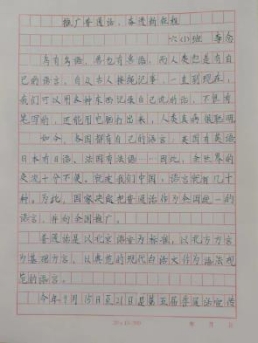 推广普通话,普通
六(1)班
鸟有鸟语,兽也有兽语,而人类也是有自
己的语言。自从古人接绳记事,一直到现在,
我们可以用各种东西记录自己说的话,不管用
笔写的,还能用电脑打出来,人类真
如今,各国都有自己的语言:英国有英语
日本有日语,法国有法语……因此,全世界的
交流十分不便。就说我们中国,语言就有几十
种。为此,国家决定把普通话作为全国统一的
语言,并向全国推广。
普通话是以北京语音为标准,以北方方言
为基础方言,以典范的现代白话文作为语法规
范的语言。
今年9月 日至 日是第五届普通话宣传